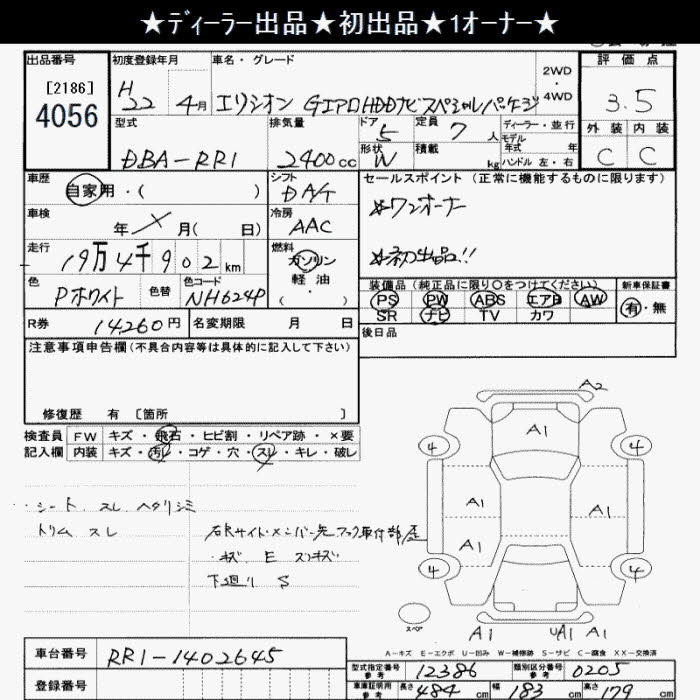 ★ディーラー出品★初出品★1オーナー★
出品番号 [2186] 4056
初度登録年月 H 22 年 4月
車名・グレード エリシオン GエアロHDDナビスペシャルパッケージ
2WD ・ 4WD
評価点 3.5
外装 内装 C C
型式 DBA-RR1
排気量 2400cc
ドア 5 形状 W
定員 7人 積載 kg
ディーラー・並行
モデル年式 年
ハンドル 左・右
車歴 自家用・( )
シフト DA/T
車検 年 月( 日)
冷房 AAC
走行 19万4千902km
燃料 ガソリン・軽油・( )
色 Pホワイト 色替 色コード NH624P
R券 14260円 名変期限 月 日
セールスポイント(正常に機能するものに限ります)
☆ワンオーナー
☆初出品!!
装備品(純正品に限り○をつけてください)
PS PW ABS エアB AW
SR ナビ TV カワ
新車保証書 有・無
後日品
注意事項申告欄(不具合内容等は具体的に記入して下さい)
修復歴 有 [箇所 ]
検査員記入欄 FW キズ・飛石・ヒビ割・リペア跡・×要
内装 キズ・汚レ・コゲ・穴・スレ・キレ・破レ
シート スレ ヘタリ シミ
トリム スレ
右Rサイドメンバー先フック取付部
キズ E
下廻り S
A2
A1
4 4
A1 A1
A1
4 4
スペア A1 UA1 A1
A-キズ E-エクボ U-凹み W-補修跡 S-サビ C-腐食 XX-交換済
車台番号 RR1-1402645
登録番号
型式指定番号 参考 12386 類別区分番号 参考 0205
車庫証明用 参考 長さ 484cm 幅 183cm 高さ 179cm